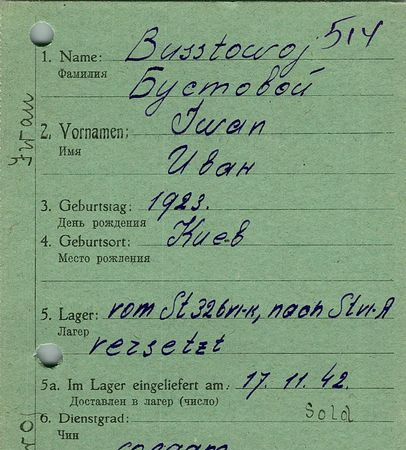 514
1. Name: Busstowoj
Фамилия Бустовой
2. Vornamen: Iwan
Имя Иван
3. Geburtstag: 1923.
День рождения
4. Geburtsort: Киев
Место рождения
5. Lager: vom St 326 VI-K, nach St VI-A
Лагер
versetzt
5a. Im Lager eingeliefert am: 17. 11. 42.
Доставлен в лагер (число)
6. Dienstgrad: Sold
Чин солдат